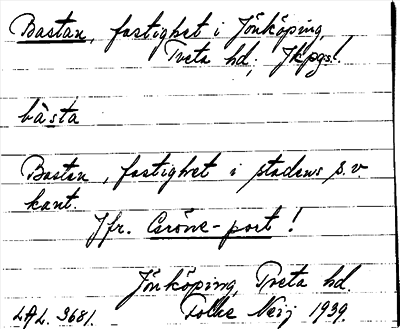 Bastan, fastighet i Jönköping,
Tveta hd; Jkpgs l.
bàsta
Bastan, fastighet i stadens s.v.
kant.
Jfr. Gröne-port!
Jönköping, Tveta hd.
LAL. 3681. Folke Neij 1939.